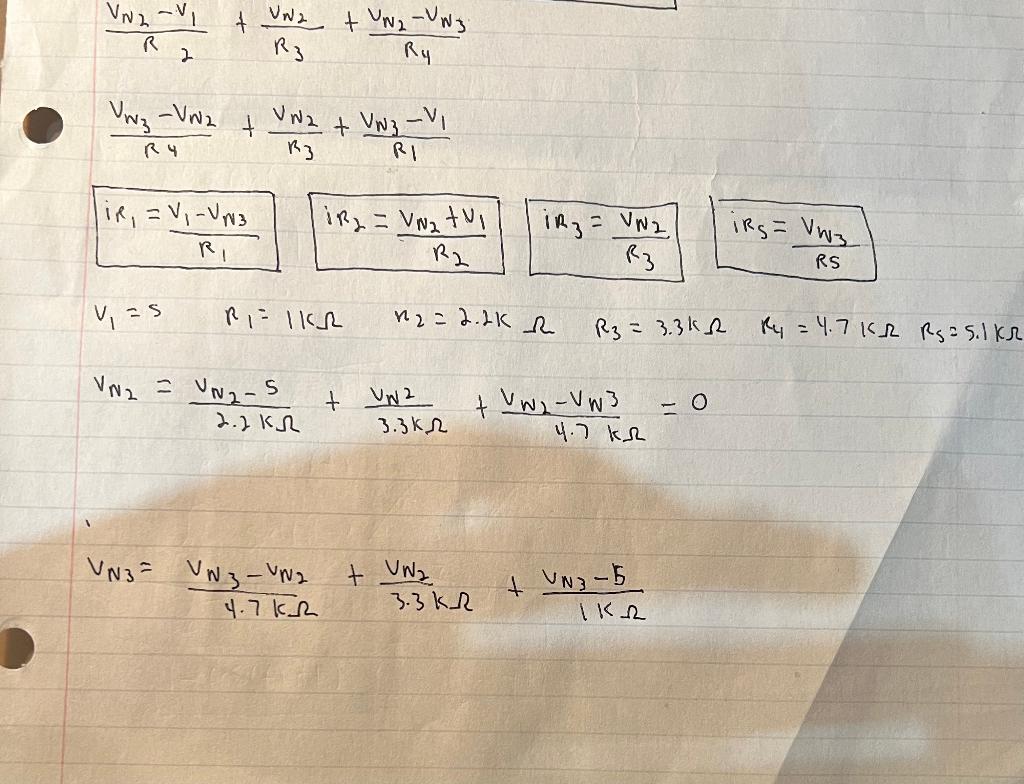 VN2 - V1 / R2 + VN2 / R3 + VN2 - VN3 / R4
VN3 - VN2 / R4 + VN2 / R3 + VN3 - V1 / R1
iR1 = V1 - VN3 / R1   iR2 = VN2 + V1 / R2   iR3 = VN2 / R3   iR5 = VN3 / R5
V1 = 5   R1 = 1KΩ   R2 = 2.2K Ω   R3 = 3.3KΩ   R4 = 4.7 KΩ   R5 = 5.1 KΩ
VN2 = VN2 - 5 / 2.2 KΩ + VN2 / 3.3KΩ + VN2 - VN3 / 4.7 KΩ = 0
VN3 = VN3 - VN2 / 4.7 KΩ + VN2 / 3.3KΩ + VN3 - 5 / 1KΩ